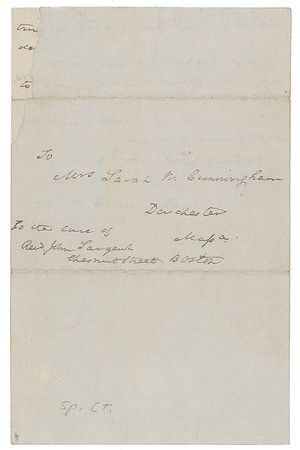 to
To
Mrs Sarah W. Cunningham
Dorchester
Massa.
To the care of
Revd. John Sargent
Chesnut Street. Boston
Sp. Ct.